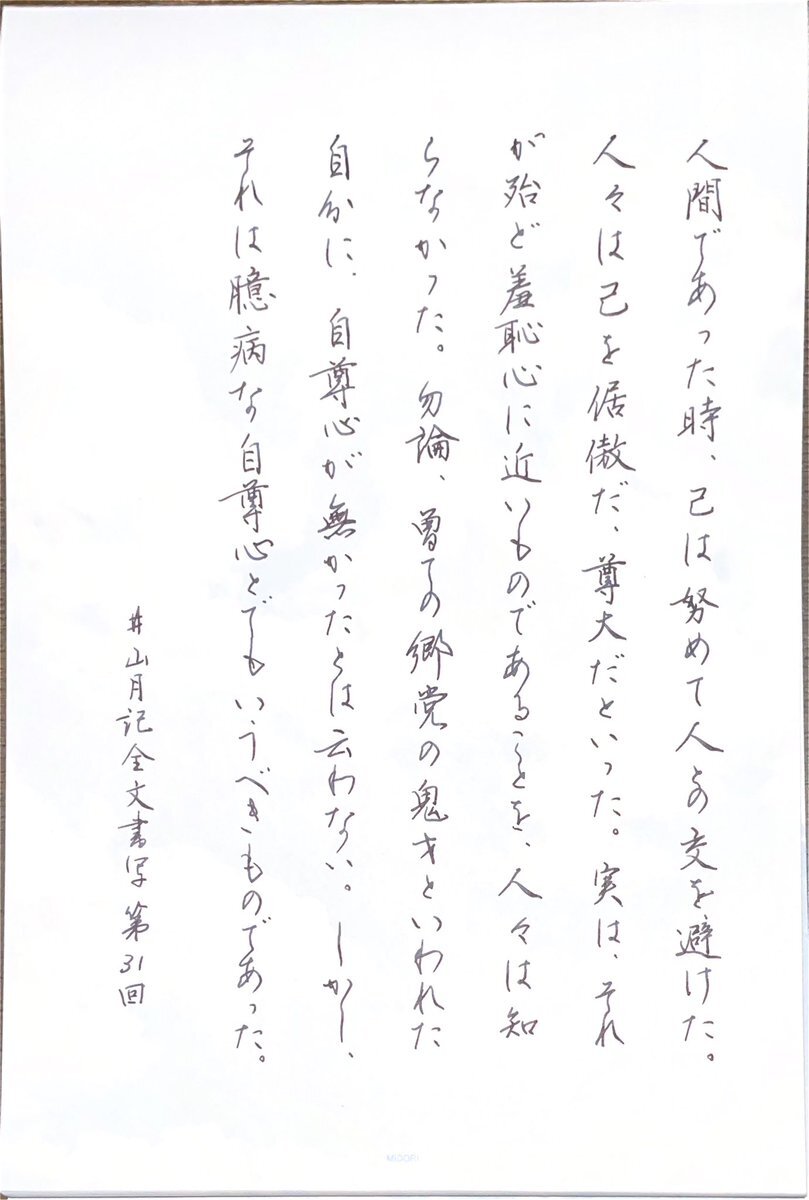 人間であった時、己は努めて人との交を避けた。
人々は己を倨傲だ、尊大だといった。実は、それ
が殆ど羞恥心に近いものであることを、人々は知
らなかった。勿論、曽ての郷党の鬼才といわれた
自分に、自尊心が無かったとは云わない。しかし、
それは臆病な自尊心とでもいうべきものであった。
#山月記全文書写 第31回
MIDORI